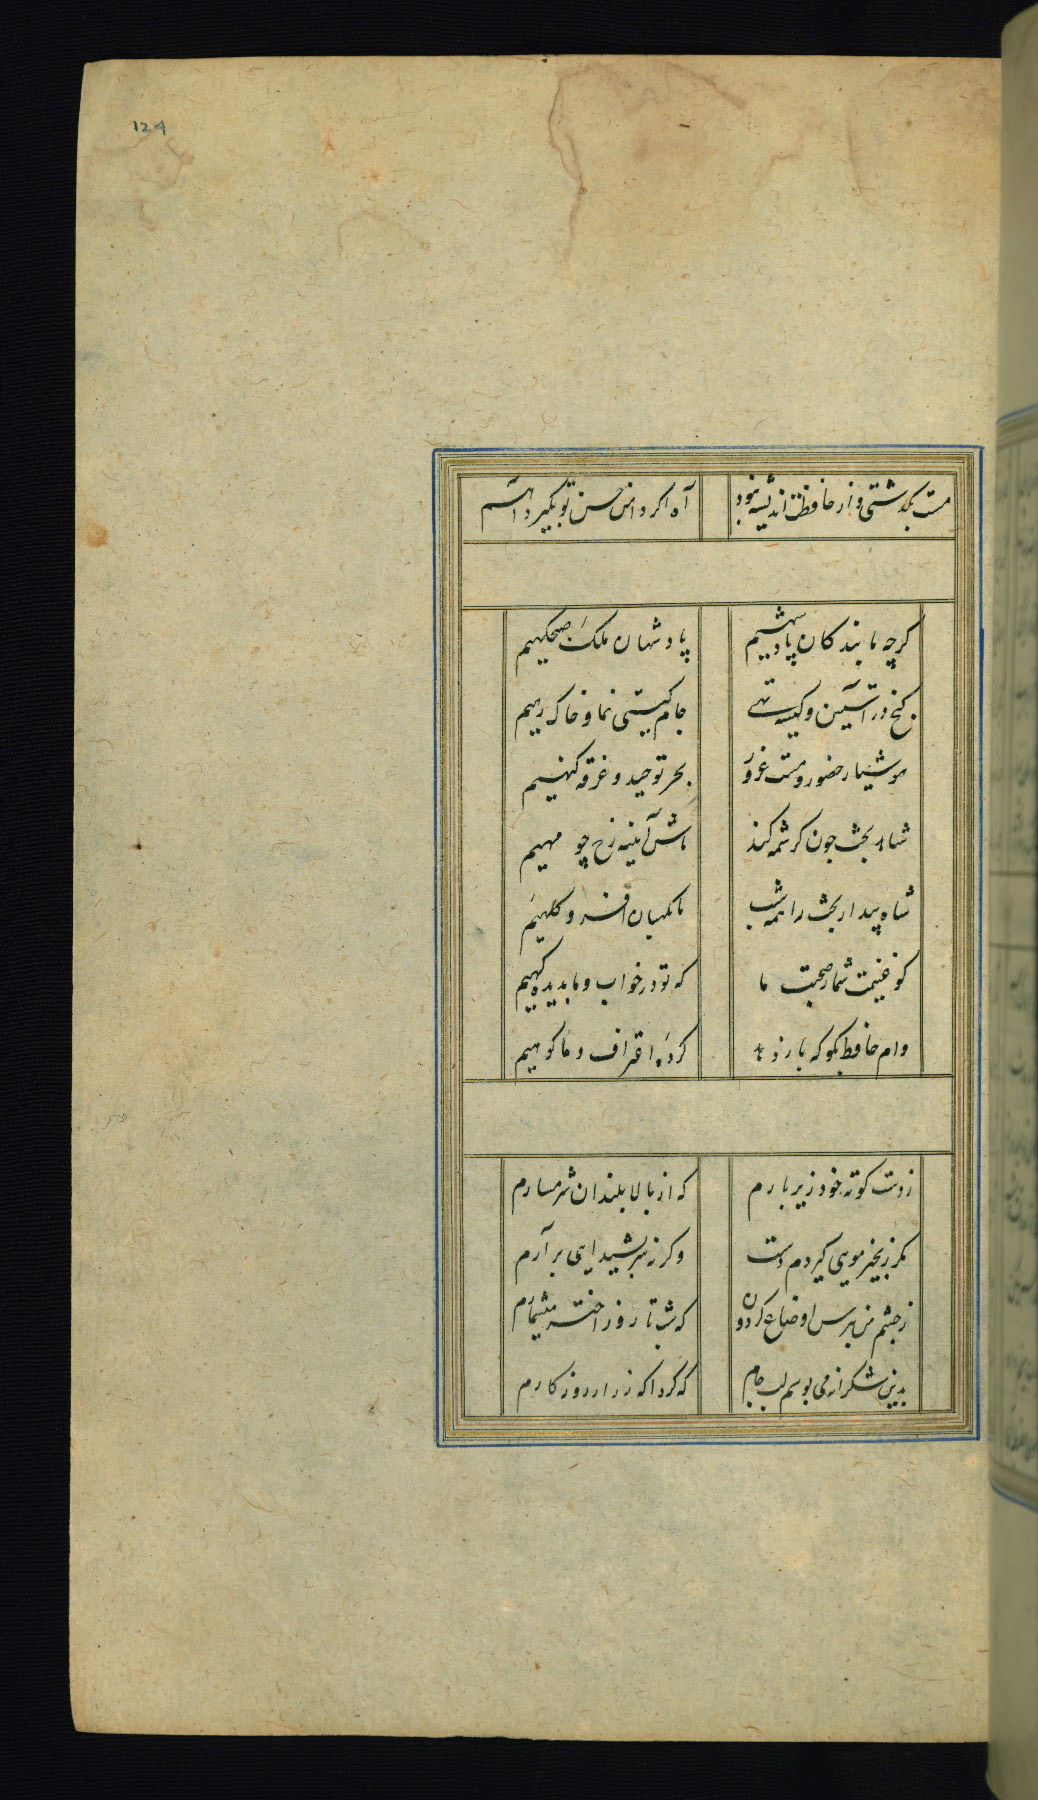 124
مست بگذشتی و از حافظت اندیشه نبود
آه اگر دامن حسن تو بگیرد آهم
گرچه ما بندگان پادشهیم
پادشهان ملک صبحگهیم
گنج در آستین و کیسه تهی
جام گیتی نما و خاک رهیم
هوشیار حضور و مست غرور
بحر توحید و غرقه گنهیم
شاهد بخت چون کرشمه کند
ماش آینه رخ چو مهیم
شاه بیدار بخت را همه شب
ما نگهبان افسر و کلهیم
گو غنیمت شمار صحبت ما
که تو در خواب و ما بدیده گهیم
وام حافظ بگو که باز دهند
کرده اعتراف و ما گوهیم
ز دست کوته خود زیر بارم
که از بالا بلندان شرمسارم
مگر زنجیر مویی گیردم دست
وگرنه سر بشیدایی برآرم
ز چشم من بپرس اوضاع گردون
که شب تا روز اختر میشمارم
بدین شکرانه می بوسم لب جام
که کرد آگه ز راز روزگارم